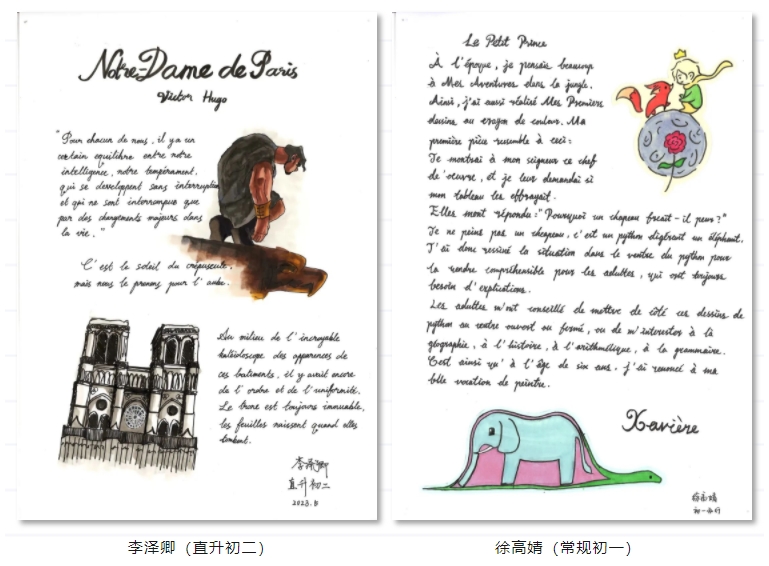 Notre-Dame de Paris
Victor Hugo
"Pour chacun de nous, il y a un
certain équilibre entre notre
intelligence, notre tempérament,
qui se développent sans interruption
et qui ne sont interrompus que
par des changements majeurs dans
la vie."
C'est le soleil du crépuscule,
mais nous le prenons pour l'aube.
Au milieu de l'incroyable
kaléidoscope des apparences de
ces batiments, il y avait encore
de l'ordre et de l'uniformité.
Le trone est toujours immuable,
les feuilles naissent quand elles
tombent.
李泽卿
直升初二
2023.
李泽卿（直升初二）
Le Petit Prince
À l'époque, je pensais beaucoup
à Mes Aventures dans la jungle.
Ainsi, j'ai aussi réalisé Mes Premiers
dessins au crayon de couleur. Ma
première pièce ressemble à ceci:
Je montrai à mon seigneur ce chef
de'oeuvre, et je leur demandai si
mon tableau les effrayait.
Elles mont répondu: "Pourquoi un chapeau ferait-il peur?"
Je ne peins pas un chapeau, c'est un python digérant un éléphant.
J'ai donc dessiné la situation dans le ventre du python pour
la rendre compréhensible pour les adultes, qui ont toujours
besoin d'explications.
Les adultes m'ont conseillé de mettre de côté ces dessins de
python au ventre ouvert ou fermé, ou de m'intéresser à la
géographie, à l'histoire, à l'arithmétique, à la grammaire.
C'est ainsi qu'à l'âge de six ans, j'ai renoncé à ma
belle vocation de peintre.
Xavière
徐高婧
徐高婧（常规初一）